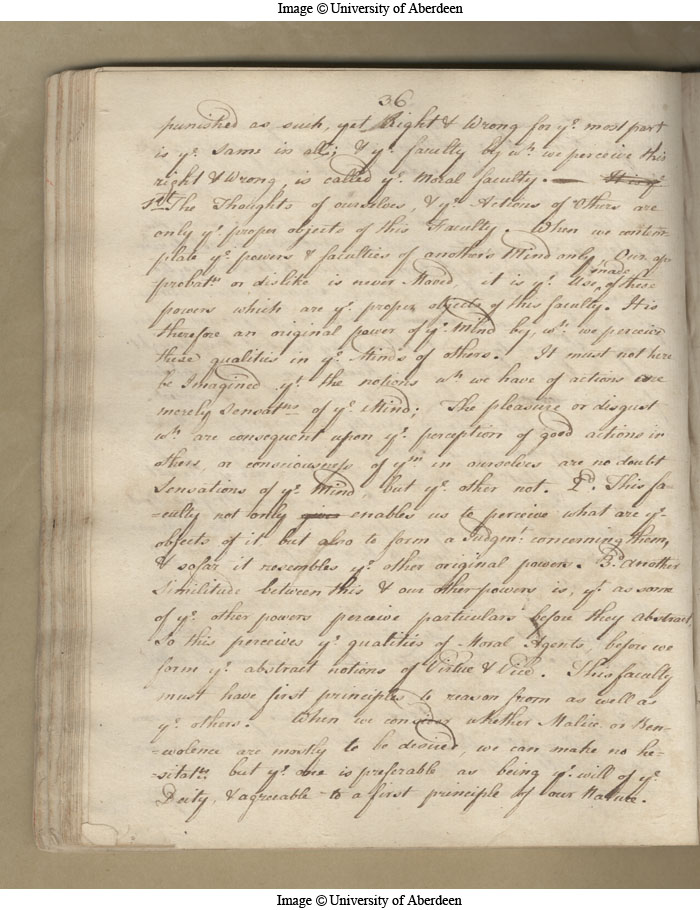 Image © University of Aberdeen
36
punished as such, yet Right & Wrong for ye. most part
is ye. same in all; & ye. faculty by wh. we perceive this
right & Wrong is called ye. Moral faculty. — It is ye.
1st The Thoughts of ourselves, & ye. Actions of Others are
only ye. proper objects of this Faculty. When we contem
plate ye. powers & faculties of another's Mind only Our ap
probatn. or dislike is never Moved, it is ye. Use made of these
powers which are ye. proper objects of this faculty. It is
therefore an original power of ye. Mind by wh. we perceive
these qualities in ye. Minds of others. It must not here
be Imagined yt. the notions wh. we have of actions are
merely Sensatns. of ye. Mind; The pleasure or disgust
wh. are consequent upon ye. perception of good actions in
others, or consciousness of ym. in ourselves are no doubt
Sensations of ye. Mind but ye. other not. 2d. This fa-
=culty not only give enables us to perceive what are ye.
objects of it but also to form a Judgmt. concerning them,
& so far it resembles ye. other original powers. 3d another
Similitude between this & our other powers is, yt. as some
of ye. other powers perceive particulars before they abstract
So this perceives ye. qualities of Moral Agents, before we
form ye. abstract notions of Virtue & Vice. This faculty
must have first principles to reason from as well as
ye. others. When we consider whether Malice or Ben-
=evolence are mostly to be desired, we can make no he-
=sitatn. but ye. one is preferable as being ye. will of ye.
Deity, & agreeable to a first principle of our Nature.
Image © University of Aberdeen